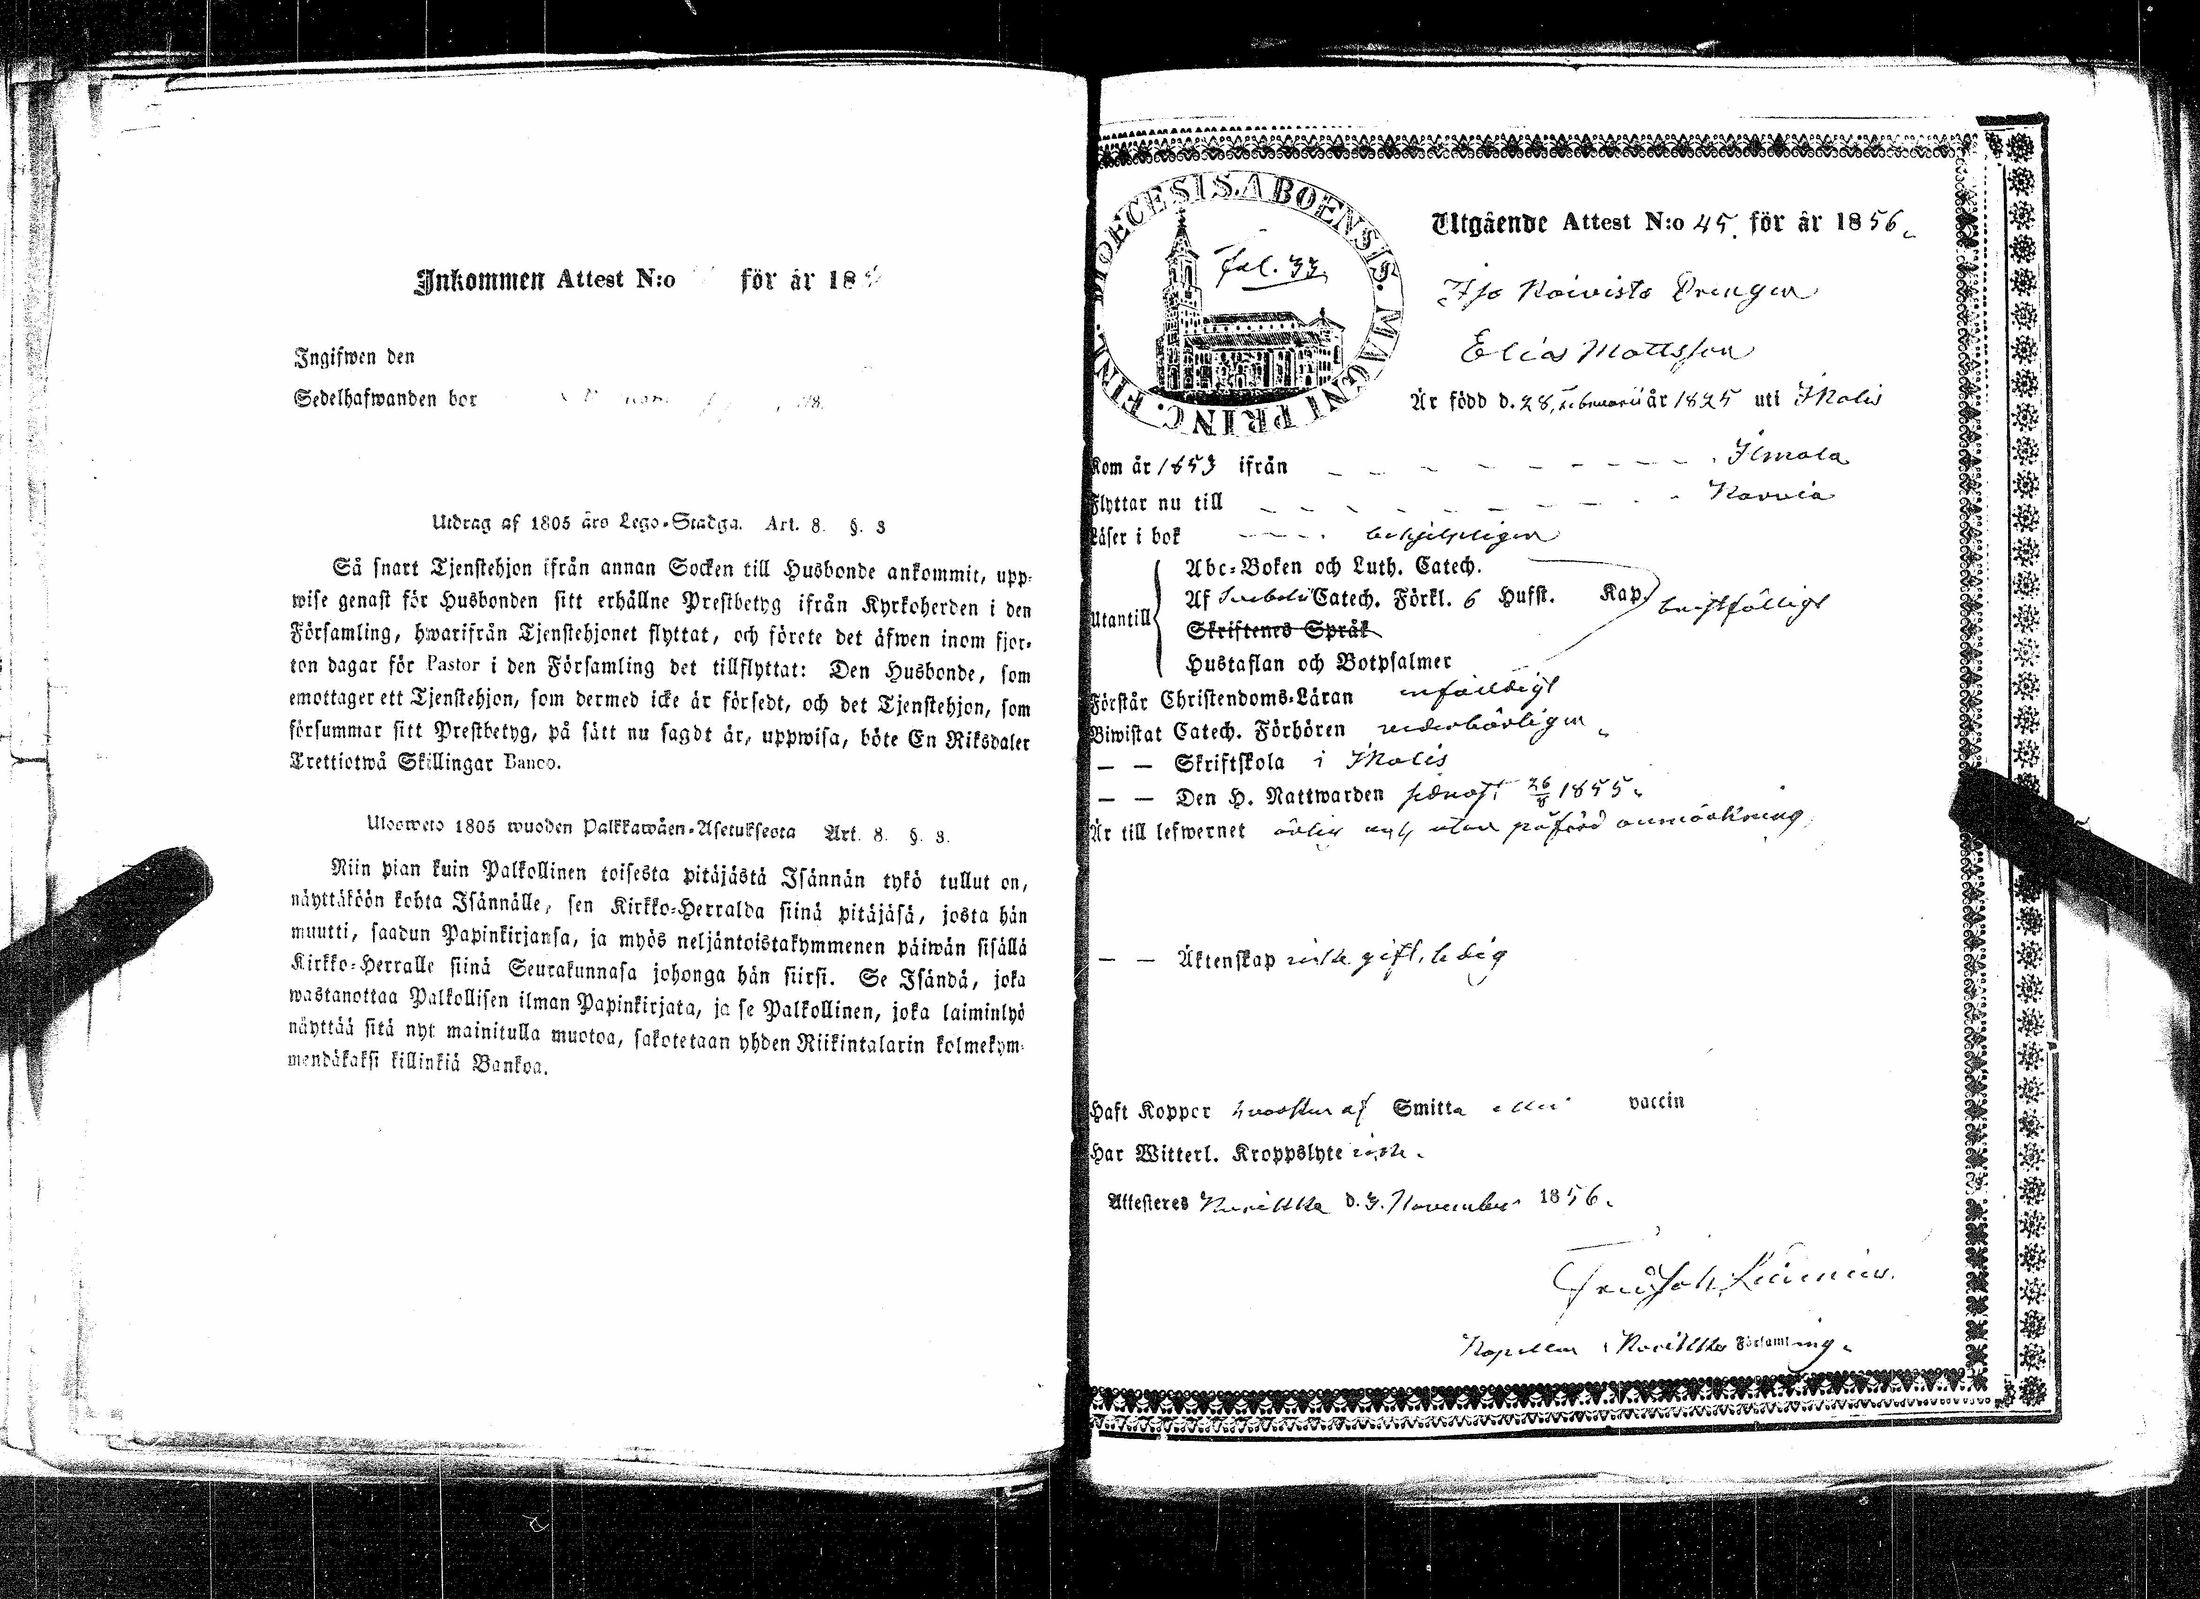 Inkommen Attest N:o för år 18
Ingifwen den
Sedelhafwanden bor
Utdrag af 1805 års Lego-Stadga. Art. 8. §. 3
Så snart Tjenstehjon ifrån annan Socken till Husbonde ankommit, upp-
wise genast för Husbonden sitt erhållne Prestbetyg ifrån Kyrkoherden i den
Församling, hwarifrån Tjenstehjonet flyttat, och förete det äfwen inom fjor-
ton dagar för Pastor i den Församling det tillflyttat: Den Husbonde, som
emottager ett Tjenstehjon, som dermed icke är försedt, och det Tjenstehjon, som
försummar sitt Prestbetyg, på sätt nu sagdt är, uppwisa, böte En Riksdaler
Trettiotwå Skillingar Banco.
Ulosweto 1805 wuoden Palkkawäen-Asetuksesta Art. 8. §. 3.
Niin pian kuin Palkollinen toisesta pitäjästä Isännän tykö tullut on,
näyttäköön kohta Isännälle, sen Kirkko-Herralda siinä pitäjäsä, josta hän
muutti, saadun Papinkirjansa, ja myös neljäntoistakymmenen päiwän sisällä
Kirkko-Herralle siinä Seurakunnasa johonga hän siirsi. Se Isändä, joka
wastanottaa Palkollisen ilman Papinkirjata, ja se Palkollinen, joka laiminlyö
näyttää sitä nyt mainitulla muotoa, sakotetaan yhden Riikintalarin kolmekym-
mendäkaksi killinkiä Bankoa.
DIOECESIS. ABOENSIS. MAGNI PRINC. FINL.
Fol. 33
Utgående Attest N:o 45. för år 1856.
Koivisto Drengen
Elias Mattsson
Är född d. 28 Februarii år 1825 uti Ikalis
Kom år 1853 ifrån – – – – Ilmola
Flyttar nu till – – – – Karvia
Läser i bok – – – behjelpligen
Utantill
Abc-Boken och Luth. Catech.
Af Svebelii Catech. Förkl. 6 Hufst. Kap.
bristfälligt
Skriftenes Språk
Hustaflan och Botpsalmer
Förstår Christendoms-Läran enfaldigt
Biwistat Catech. Förhören vederbörligen
— — Skriftskola i Ikalis
— — Den H. Nattwarden sednast 26/8 1855.
Är till lefwernet ärlig och utan påförd anmärkning
— — Äktenskap icke gift, ledig
Haft Kopper hvarken af Smitta eller vaccin
Har Witterl. Kroppslyte icke.
Attesteres d. 3. November 1856.
Kapellan i Församling.